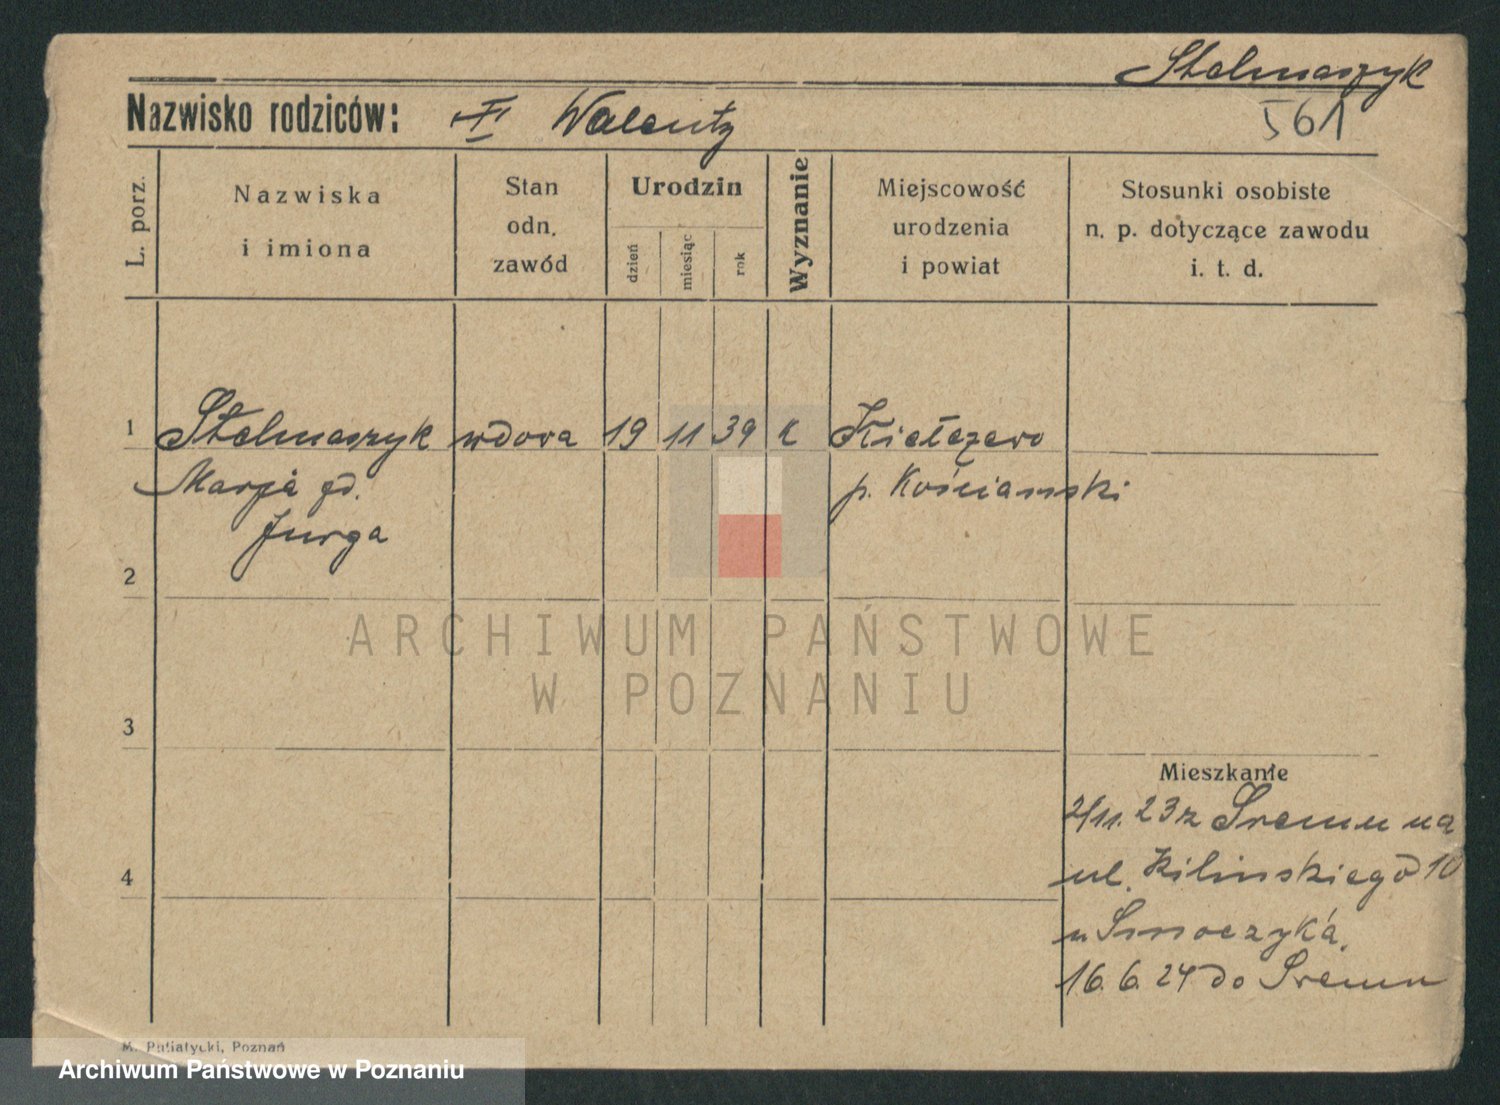 Stelmaszyk
561
Nazwisko rodziców: Walenty
L. porz.
Nazwiska
i imiona
Stan
odn.
zawód
Urodzin
dzień
miesiąc
rok
Wyznanie
Miejscowość
urodzenia
i powiat
Stosunki osobiste
n. p. dotyczące zawodu
i. t. d.
1 Stelmaszyk wdowa 19 11 39 k Kiełczewo
Marja p. Kościanski
Jurga
2
ARCHIWUM PAŃSTWOWE
W POZNANIU
3
Mieszkanie
2/11. 23 z Śremu na
ul. Kilinskiego 10
4
u Smoczyka,
16. 6. 24 do Śremu
M. Putiatycki, Poznań
Archiwum Państwowe w Poznaniu